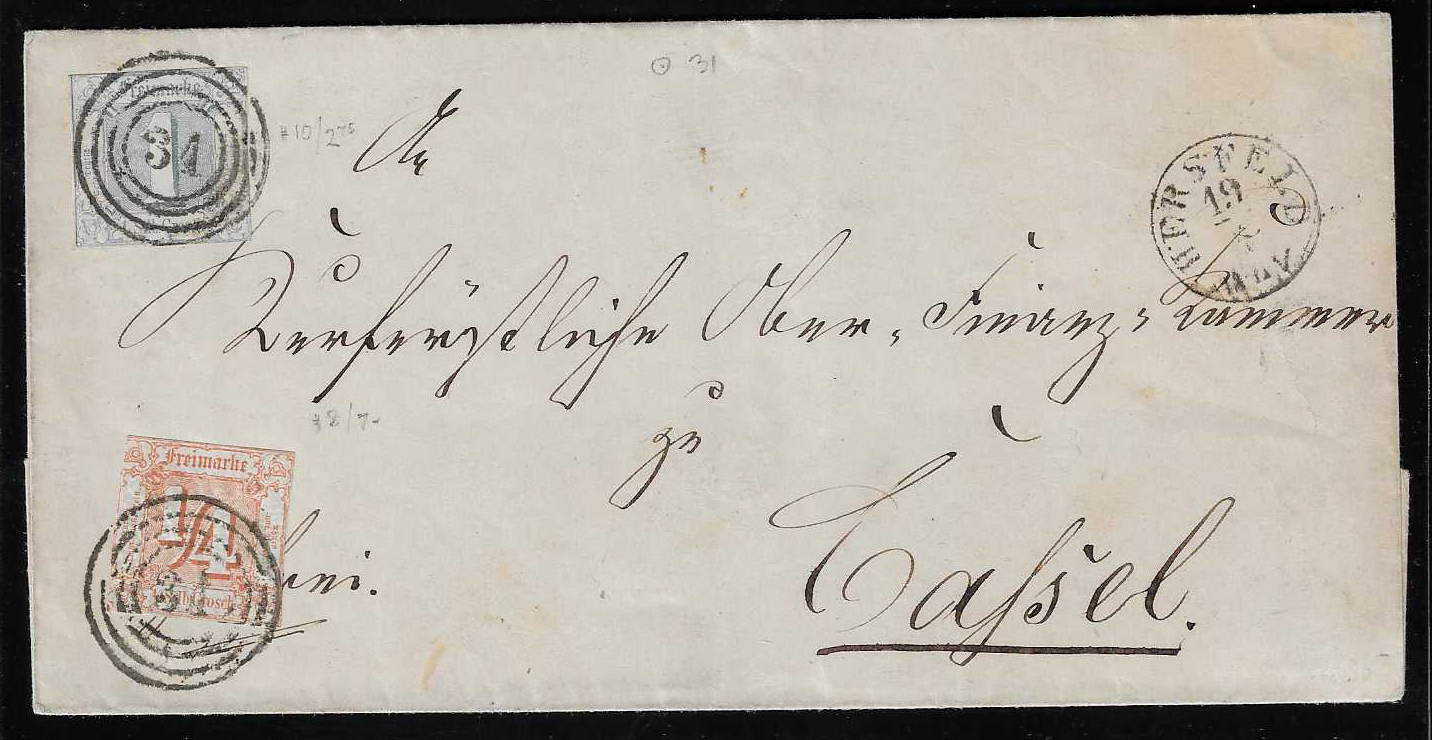 ⊙ 31
Freimarke
1
31
#10/275
An
HERSFELD
19
Kurfürstliche Ober-Finanz-Kammer
#8/7-
zu
Freimarke
1/4
31
frei.
Cassel.